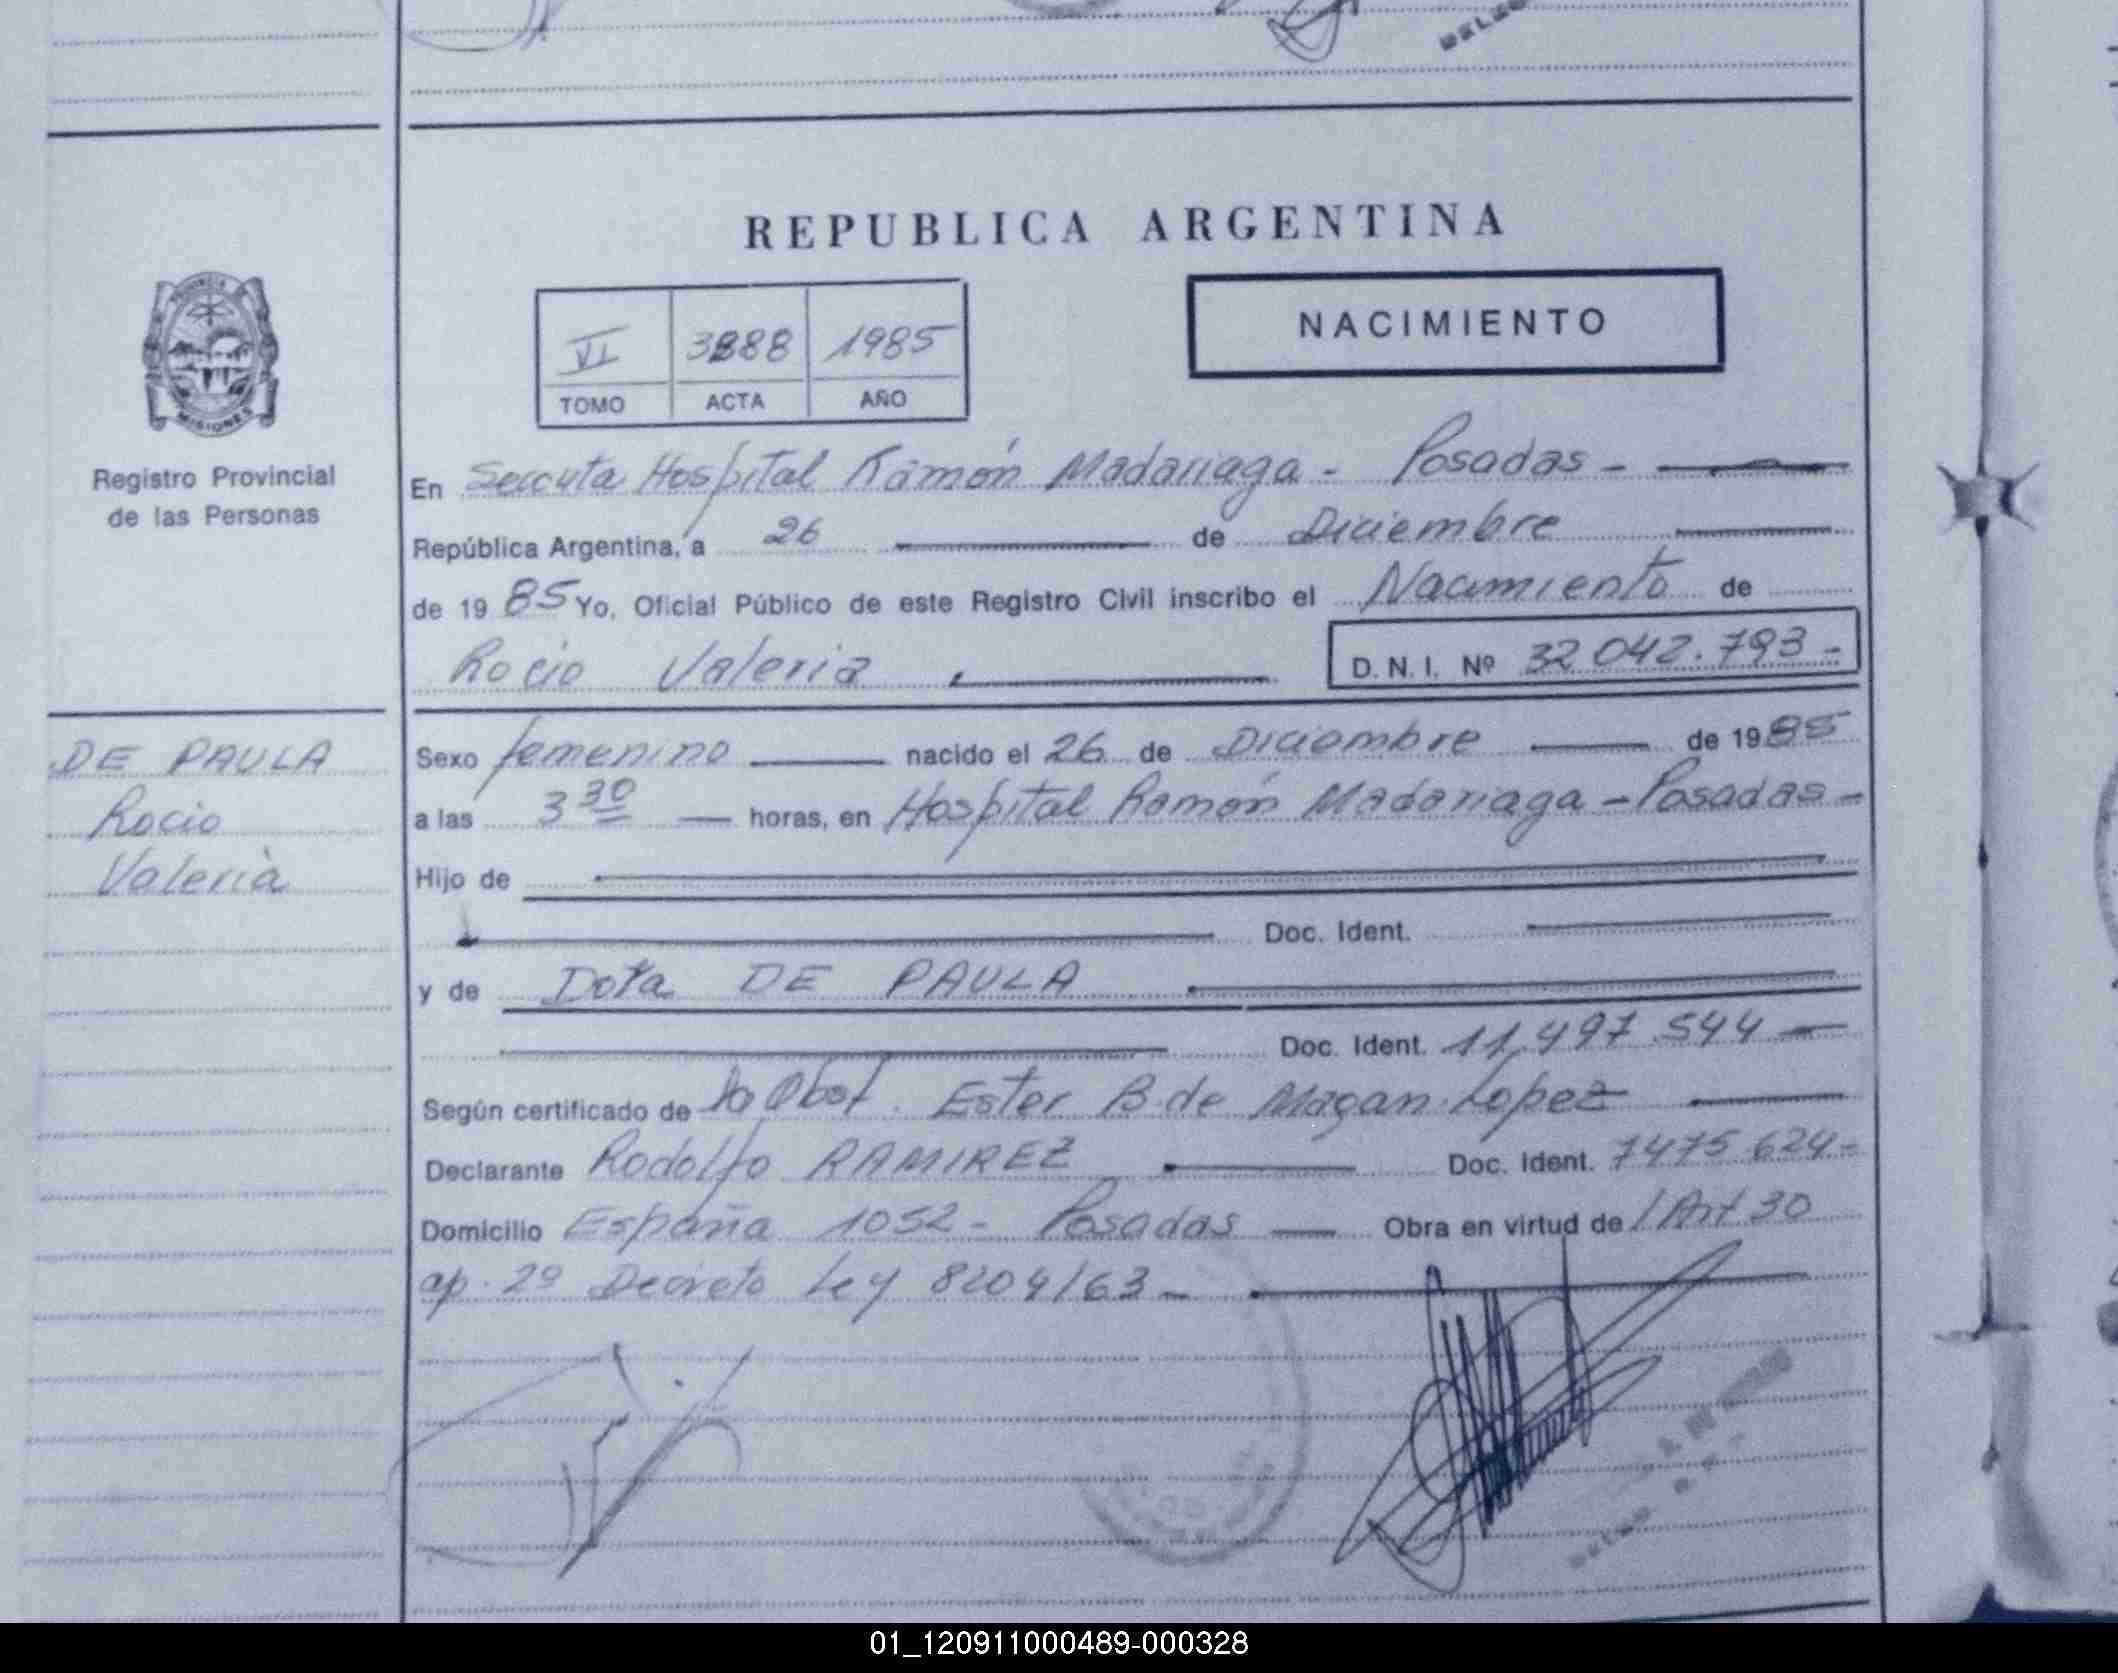 DELEG
REPUBLICA ARGENTINA
NACIMIENTO
VI 3888 1985
TOMO ACTA AÑO
PROVINCIA DE
MISIONES
Registro Provincial
de las Personas
En Seccuta Hospital Ramón Madariaga - Posadas -
República Argentina, a 26 de Diciembre
de 1985 Yo, Oficial Público de este Registro Civil inscribo el Nacimiento de
Rocio Valeria D.N.I. Nº 32 042.793-
DE PAULA
Rocio
Valeria
Sexo femenino nacido el 26 de Diciembre de 1985
a las 3 30 horas, en Hospital Ramón Madariaga - Posadas -
Hijo de
Doc. Ident.
y de Dora DE PAULA
Doc. Ident. 11.497.544
Según certificado de la Obst. Ester B. de Magan Lopez
Declarante Rodolfo RAMIREZ Doc. Ident. 7475 624-
Domicilio España 1052 - Posadas Obra en virtud de l Art 30
ap. 2º Decreto Ley 8204/63-
01_120911000489-000328